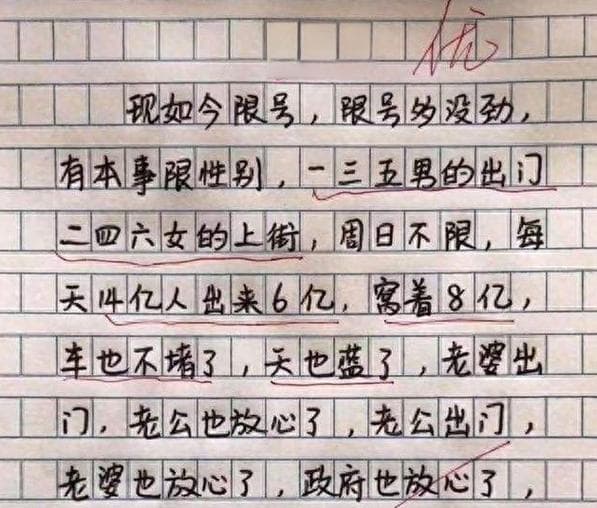 优
现如今限号，限号多没劲，
有本事限性别，一三五男的出门
二四六女的上街，周日不限，每
天14亿人出来6亿，窝着8亿，
车也不堵了，天也蓝了，老婆出
门，老公也放心了，老公出门，
老婆也放心了，政府也放心了，